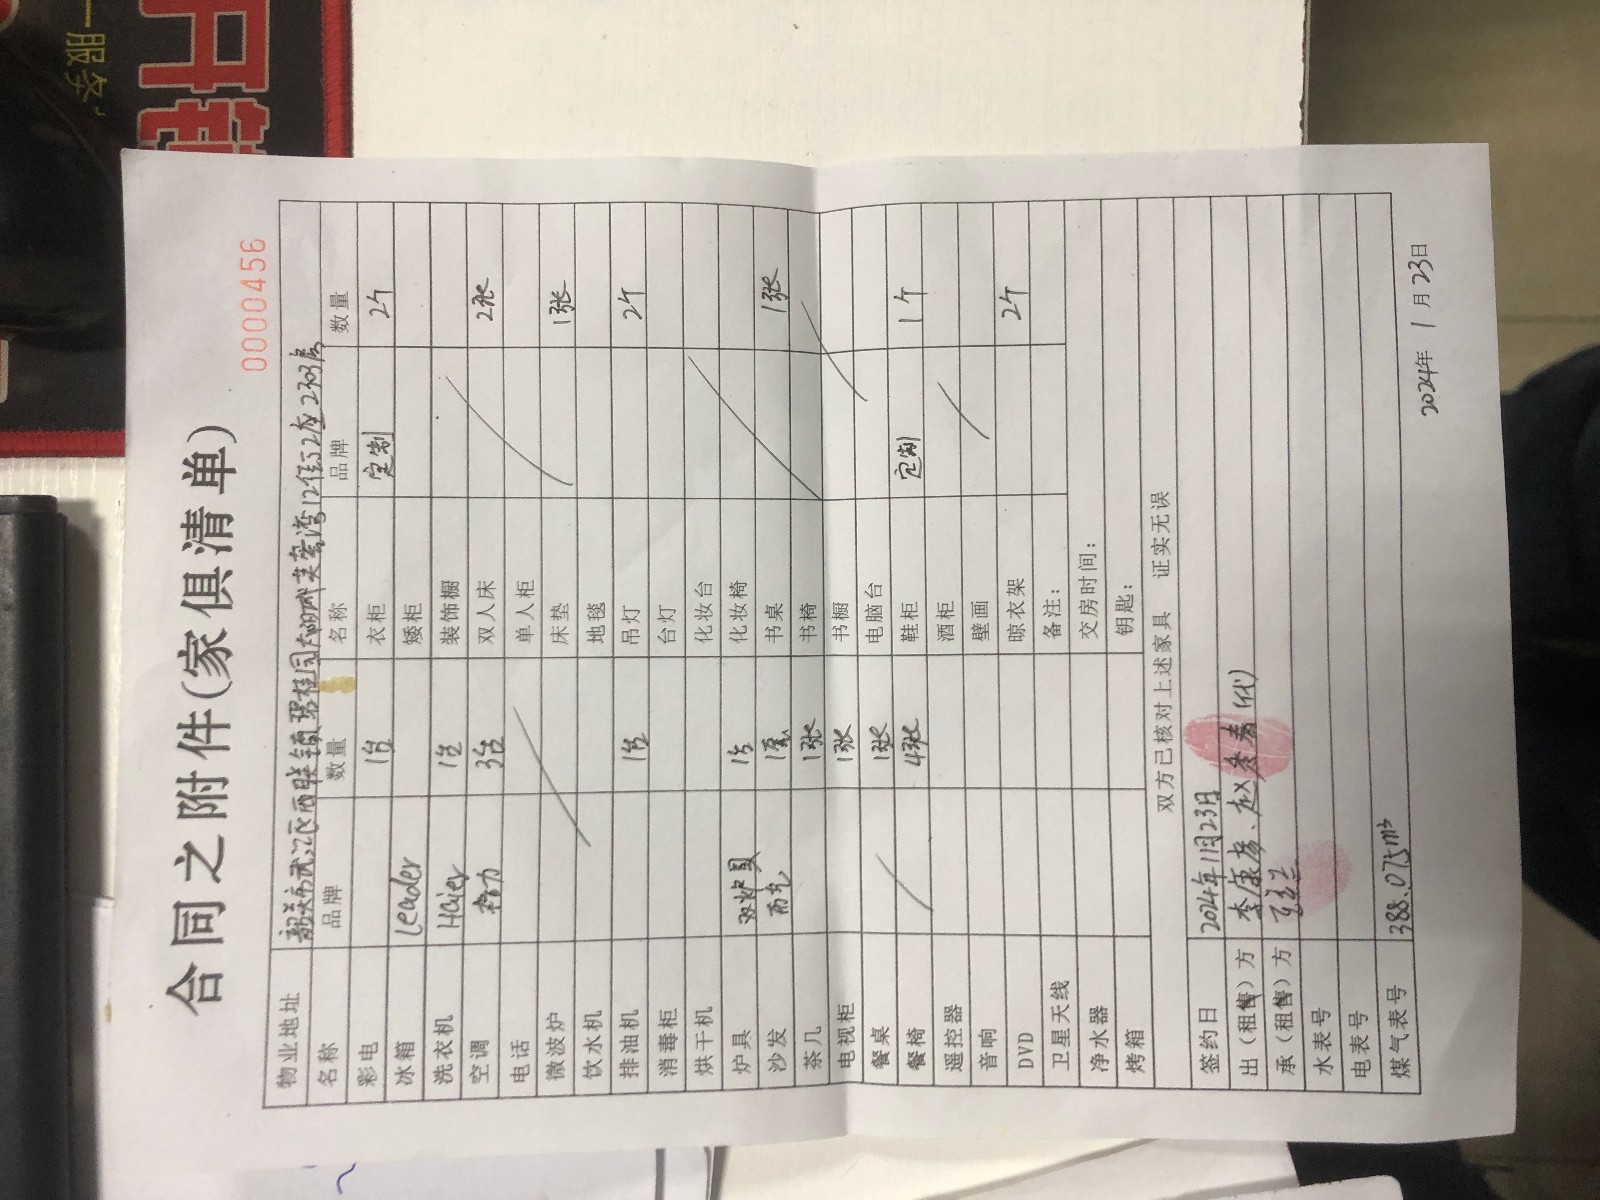 一服务
开锁
0000456
合同之附件(家俱清单)
物业地址 韶关市武江区西联镇碧桂园太阳城芙蓉湾12街12座2303房
名称 品牌 数量 名称 品牌 数量
彩电 1台 衣柜 定制 2个
冰箱 Leader 矮柜
洗衣机 Haier 1台 装饰橱
空调 3台 双人床 2张
电话 单人柜
微波炉 床垫 1张
饮水机 地毯
排油机 1台 吊灯 2个
消毒柜 台灯
烘干机 化妆台
炉具 双炉具 1台 化妆椅
沙发 布艺 1套 书桌 1张
茶几 1张 书椅
电视柜 1张 书橱
餐桌 1张 电脑台
餐椅 4张 鞋柜 定制 1个
遥控器 酒柜
音响 壁画
DVD 晾衣架 2个
卫星天线 备注:
净水器 交房时间:
烤箱 钥匙:
双方已核对上述家具 证实无误
签约日 2024年1月23日
出(租售)方 李康彦、赵春(代)
承(租售)方
水表号
电表号
煤气表号 388.075m³
2024年 1月23日